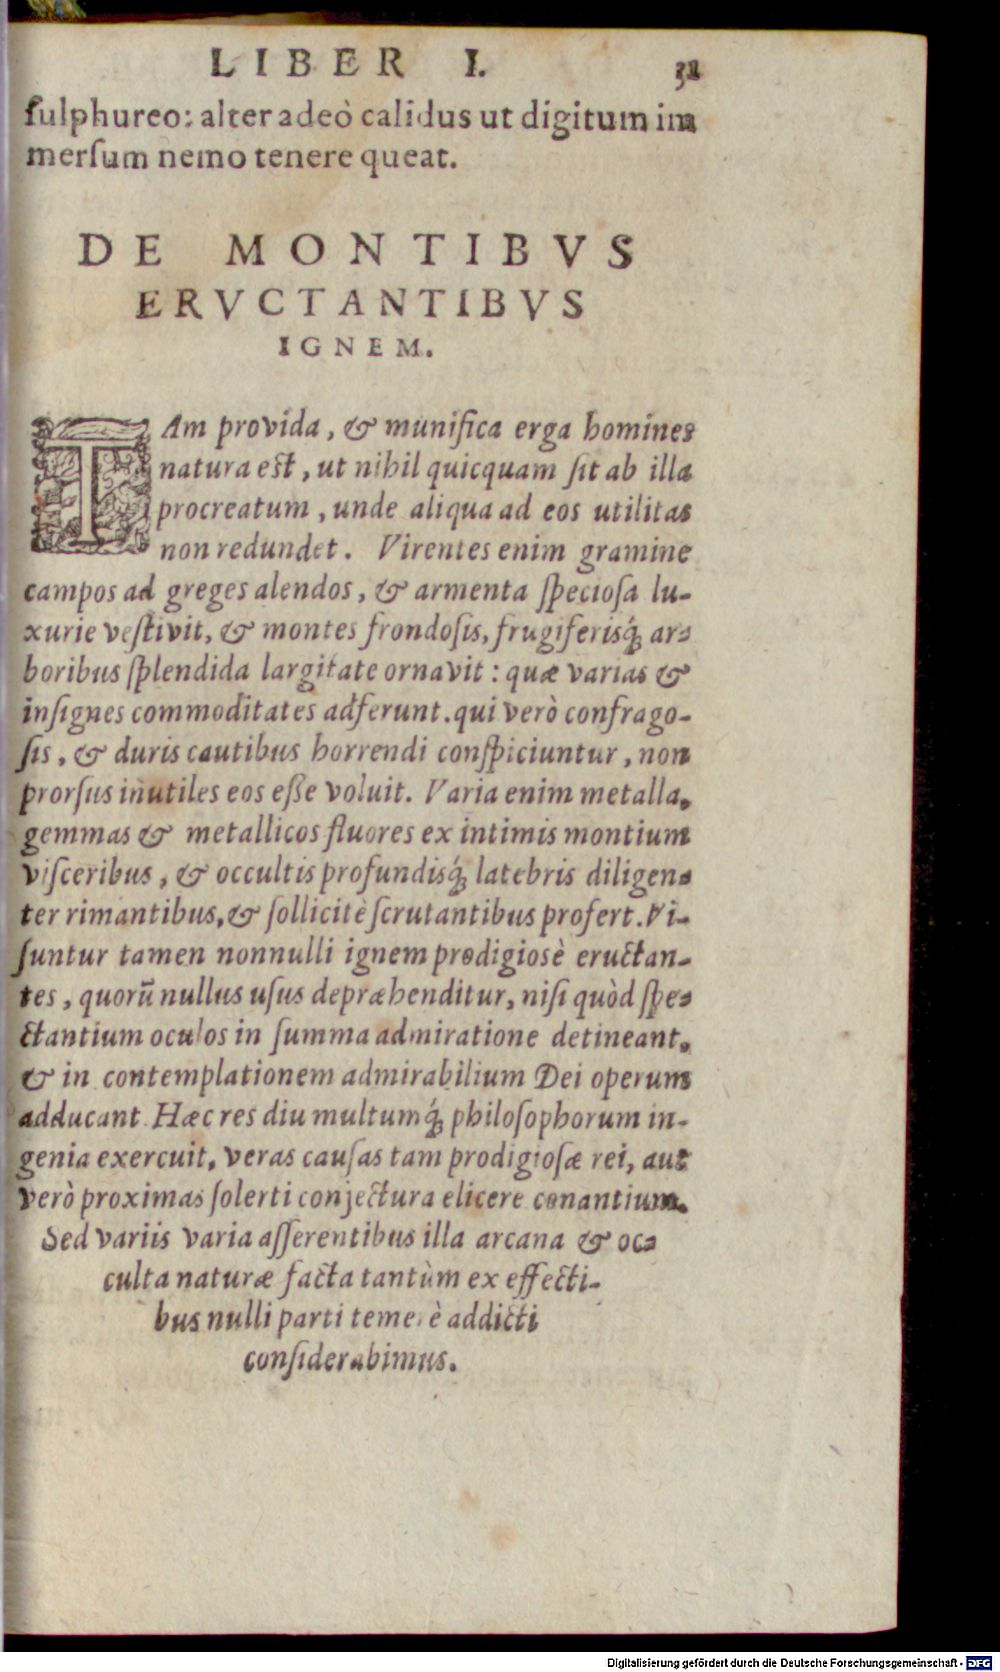 LIBER I. 31
ſulphureo: alter adeò calidus ut digitum im
merſum nemo tenere queat.
DE MONTIBVS
ERVCTANTIBVS
IGNEM.
TAm provida, & munifica erga homines
natura est, ut nihil quicquam ſit ab illa
procreatum, unde aliqua ad eos utilitas
non redundet. Virentes enim gramine
campos ad greges alendos, & armenta ſpecioſa lu-
xurie veſtivit, & montes frondoſis, frugiferisq́; ar-
boribus ſplendida largitate ornavit: quæ varias &
inſignes commoditates adferunt. qui verò confrago-
ſis, & duris cautibus horrendi conſpiciuntur, non
prorſus inutiles eos eſſe voluit. Varia enim metalla,
gemmas & metallicos fluores ex intimis montium
viſceribus, & occultis profundisq́; latebris diligen-
ter rimantibus, & ſollicitè ſcrutantibus profert. Vi-
ſuntur tamen nonnulli ignem prodigiosè eructan-
tes, quorū nullus uſus depræhenditur, niſi quòd ſpe-
ctantium oculos in ſumma admiratione detineant,
& in contemplationem admirabilium Dei operum
adducant. Hæc res diu multumq́; philoſophorum in-
genia exercuit, veras cauſas tam prodigioſæ rei, aut
verò proximas ſolerti conjectura elicere conantium.
Sed variis varia aſſerentibus illa arcana & oc-
culta naturæ facta tantùm ex effecti-
bus nulli parti temerè addicti
conſiderabimus.
Digitalisierung gefördert durch die Deutsche Forschungsgemeinschaft - DFG